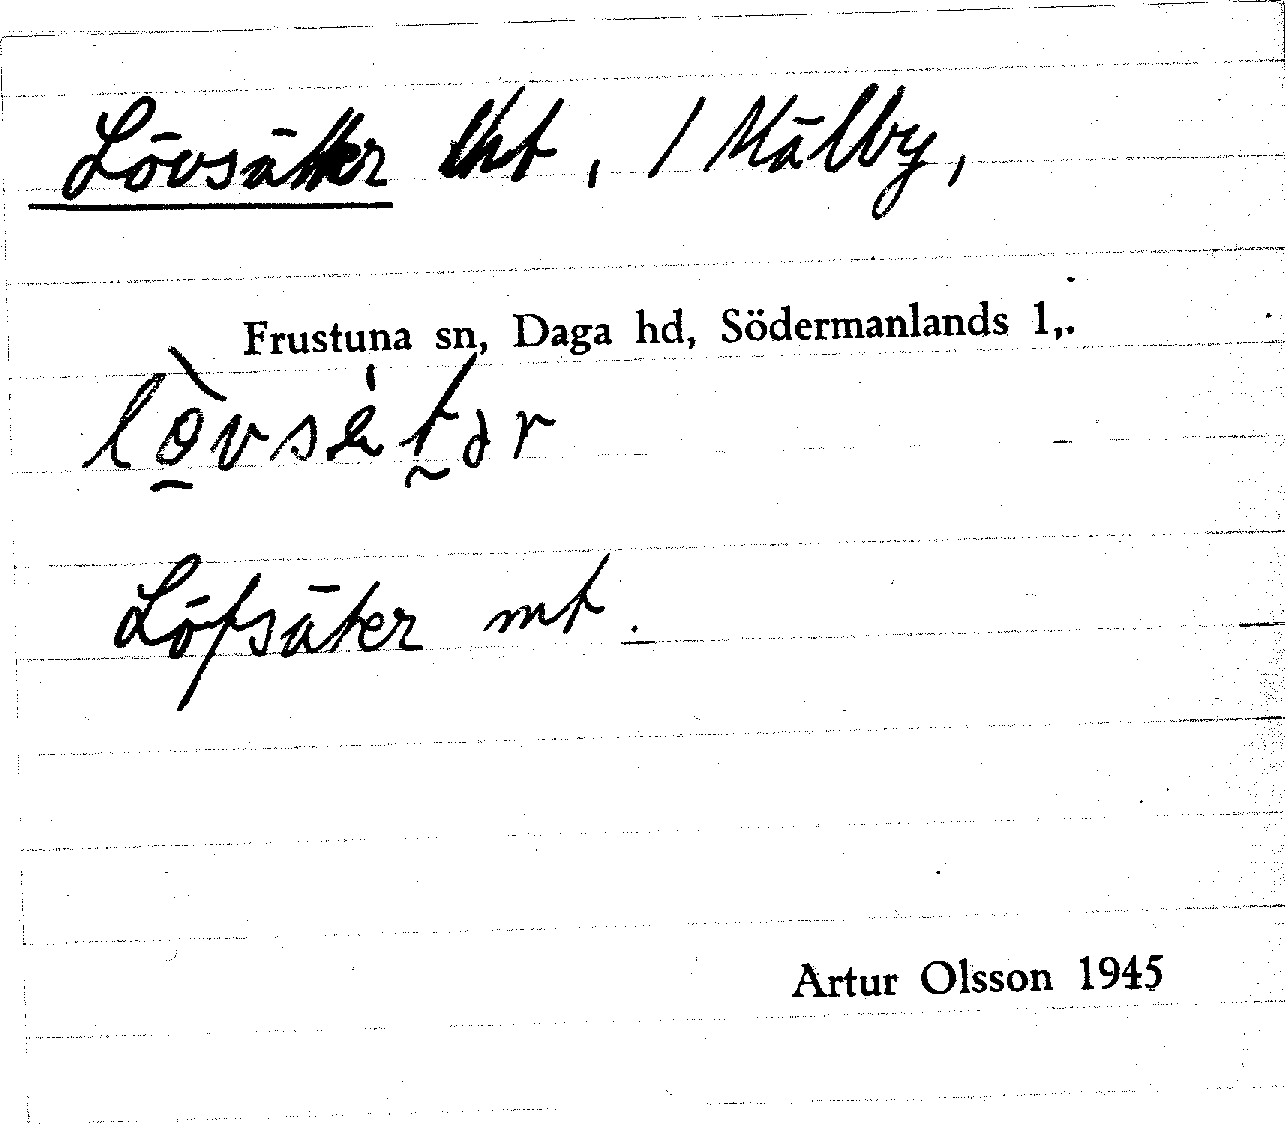 Lövsätter lht, / Mälby,
Frustuna sn, Daga hd, Södermanlands l,.
Löfsäter mt.
Artur Olsson 1945